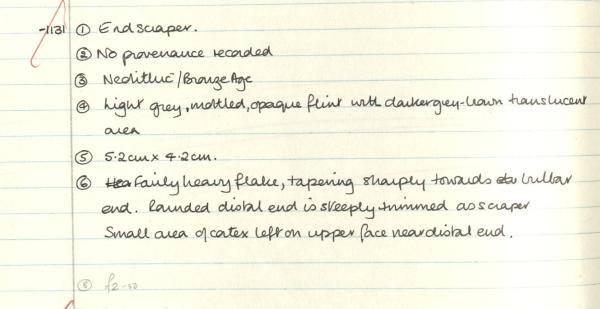 -1131 ① End scraper.
② No provenance recorded
③ Neolithic/Bronze Age
④ Light grey, mottled, opaque flint with darker grey-brown translucent
area
⑤ 5.2cm x 4.2cm.
⑥ Fairly heavy flake, tapering sharply towards bulbar
end. Rounded distal end is steeply trimmed as scraper
Small area of cortex left on upper face near distal end.
⑧ £2-50